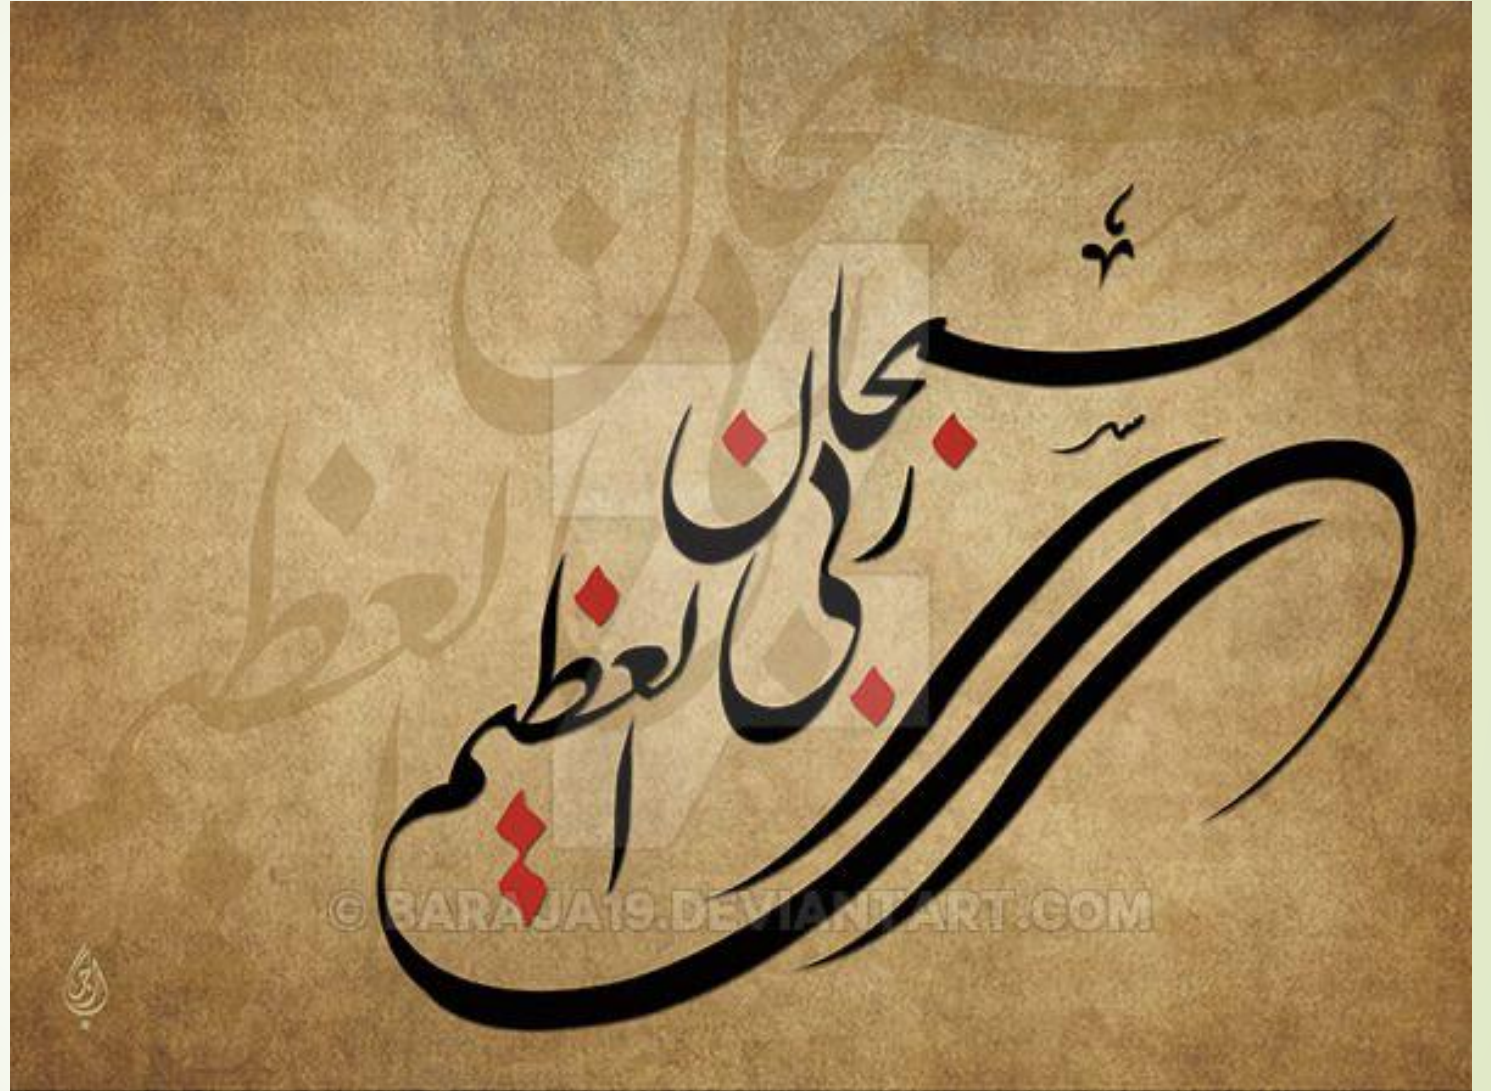 سبحان
ربي
العظيم
© BARAJA19.DEVIANTART.COM